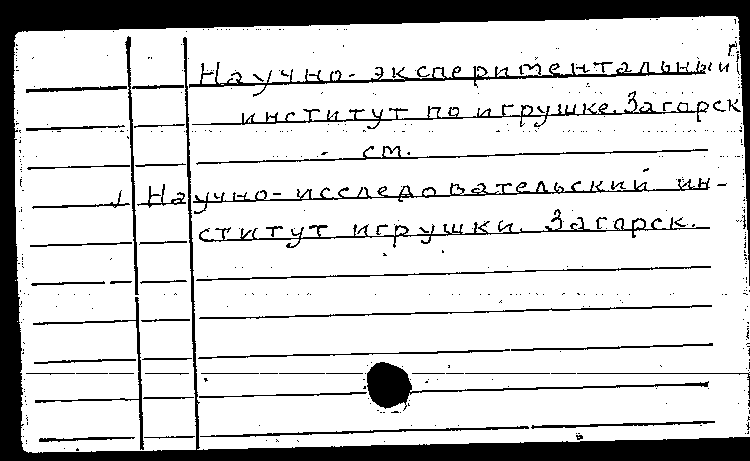 Научно-экспериментальный
институт по игрушке. Загорск
см.
Научно-исследовательский ин-
ститут игрушки. Загорск.